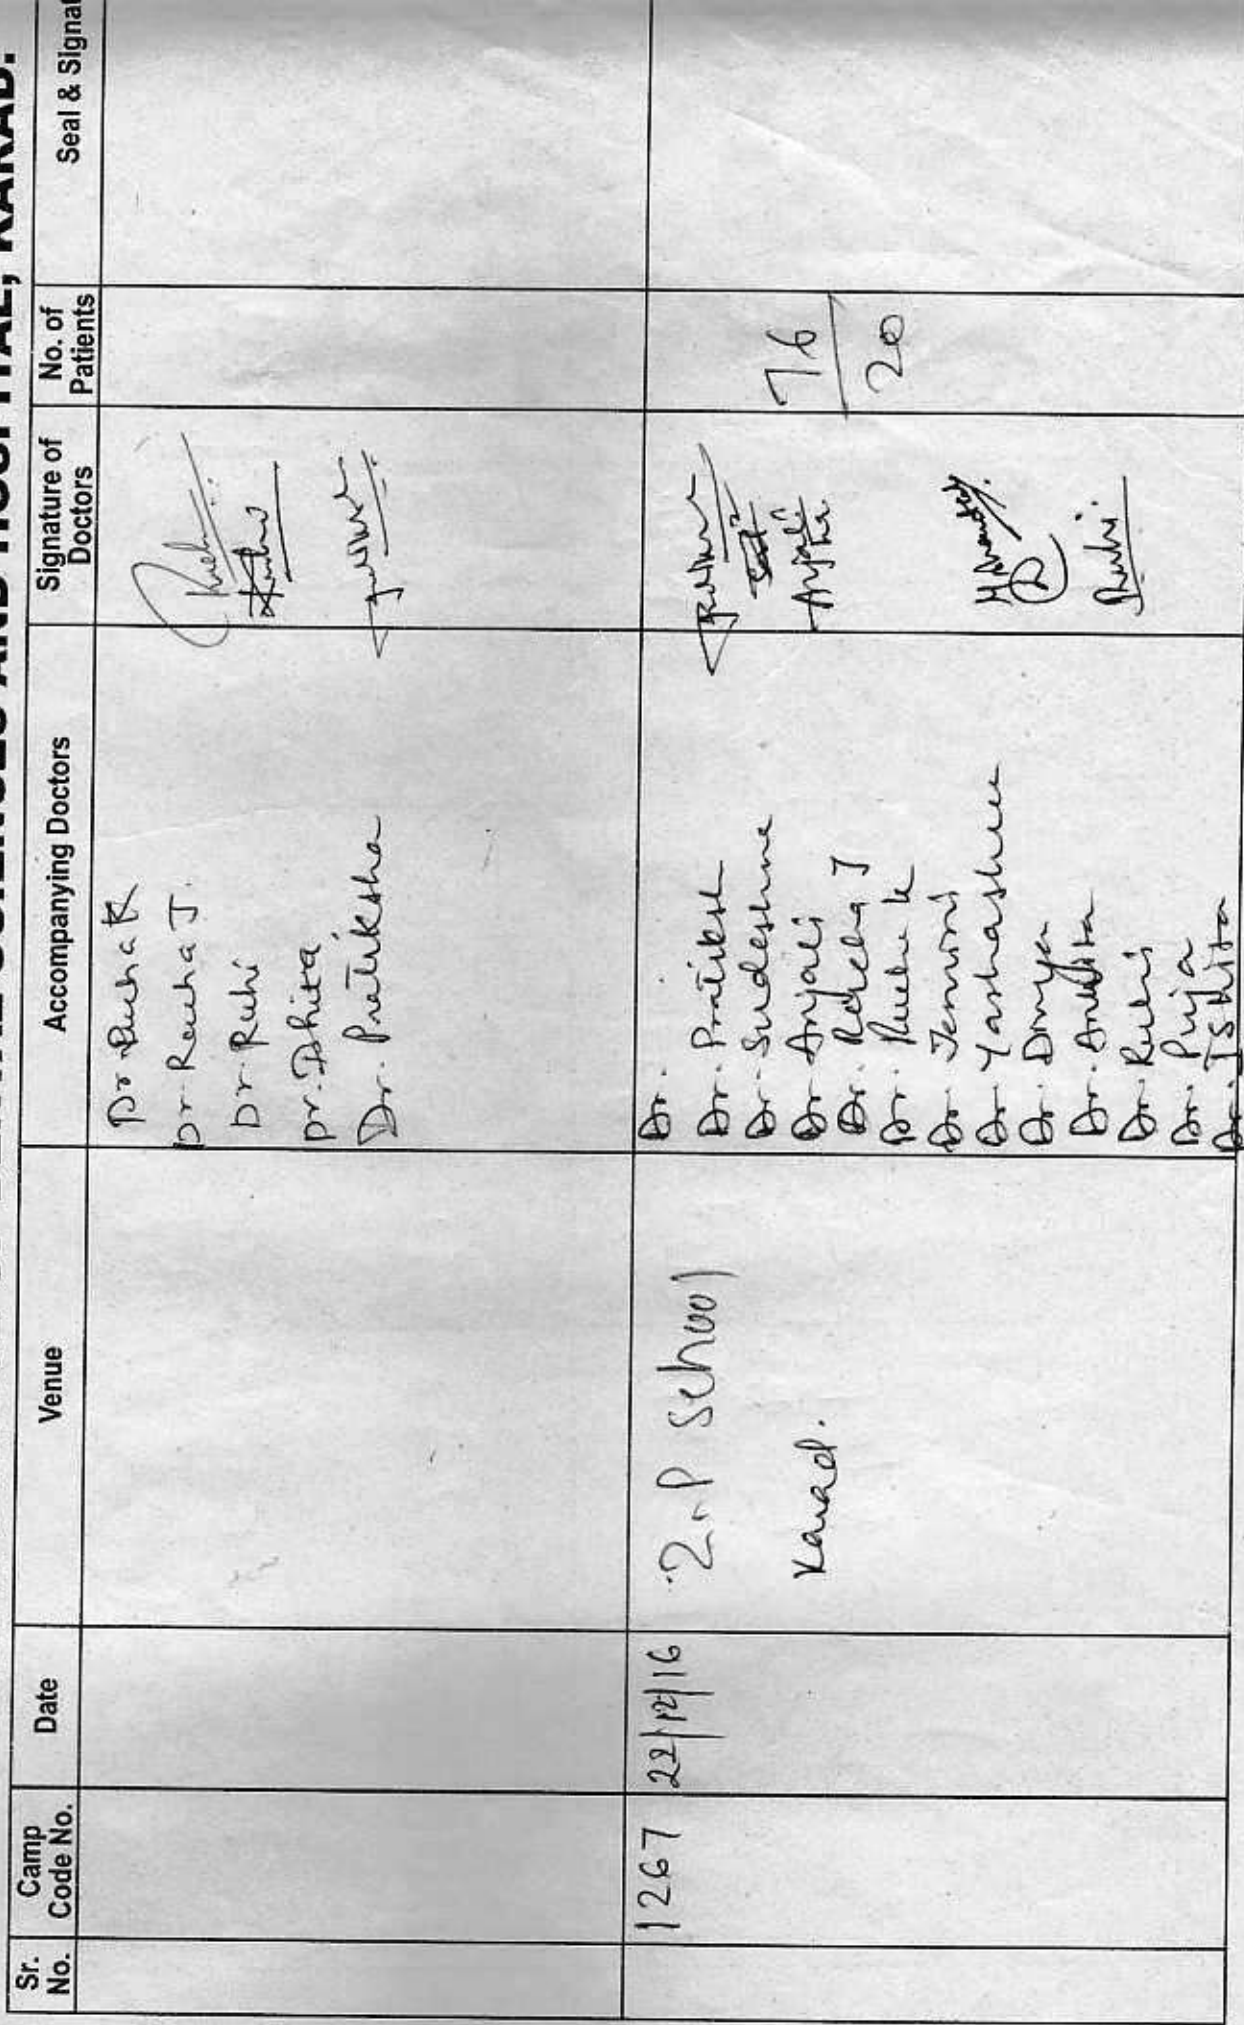 AND HOSPITAL, KARAD.
Sr. No.
Camp Code No.
Date
Venue
Accompanying Doctors
Signature of Doctors
No. of Patients
Seal & Signat
Dr Rucha K
Dr. Rucha J.
Dr. Ruhi
Dr. Ishita
Dr. Pratiksha
1267
22/12/16
Z.P School
Karad.
Dr.
Dr. Pratiksh
Dr. Sudeshna
Dr. Anjali
Dr. Rucha J
Dr. Rucha K
Dr.
Dr. Yashashree
Dr. Divya
Dr. Ankita
Dr. Ruhi
Dr. Puja
Dr. Ishita
Anjali
Ruhi
76
20